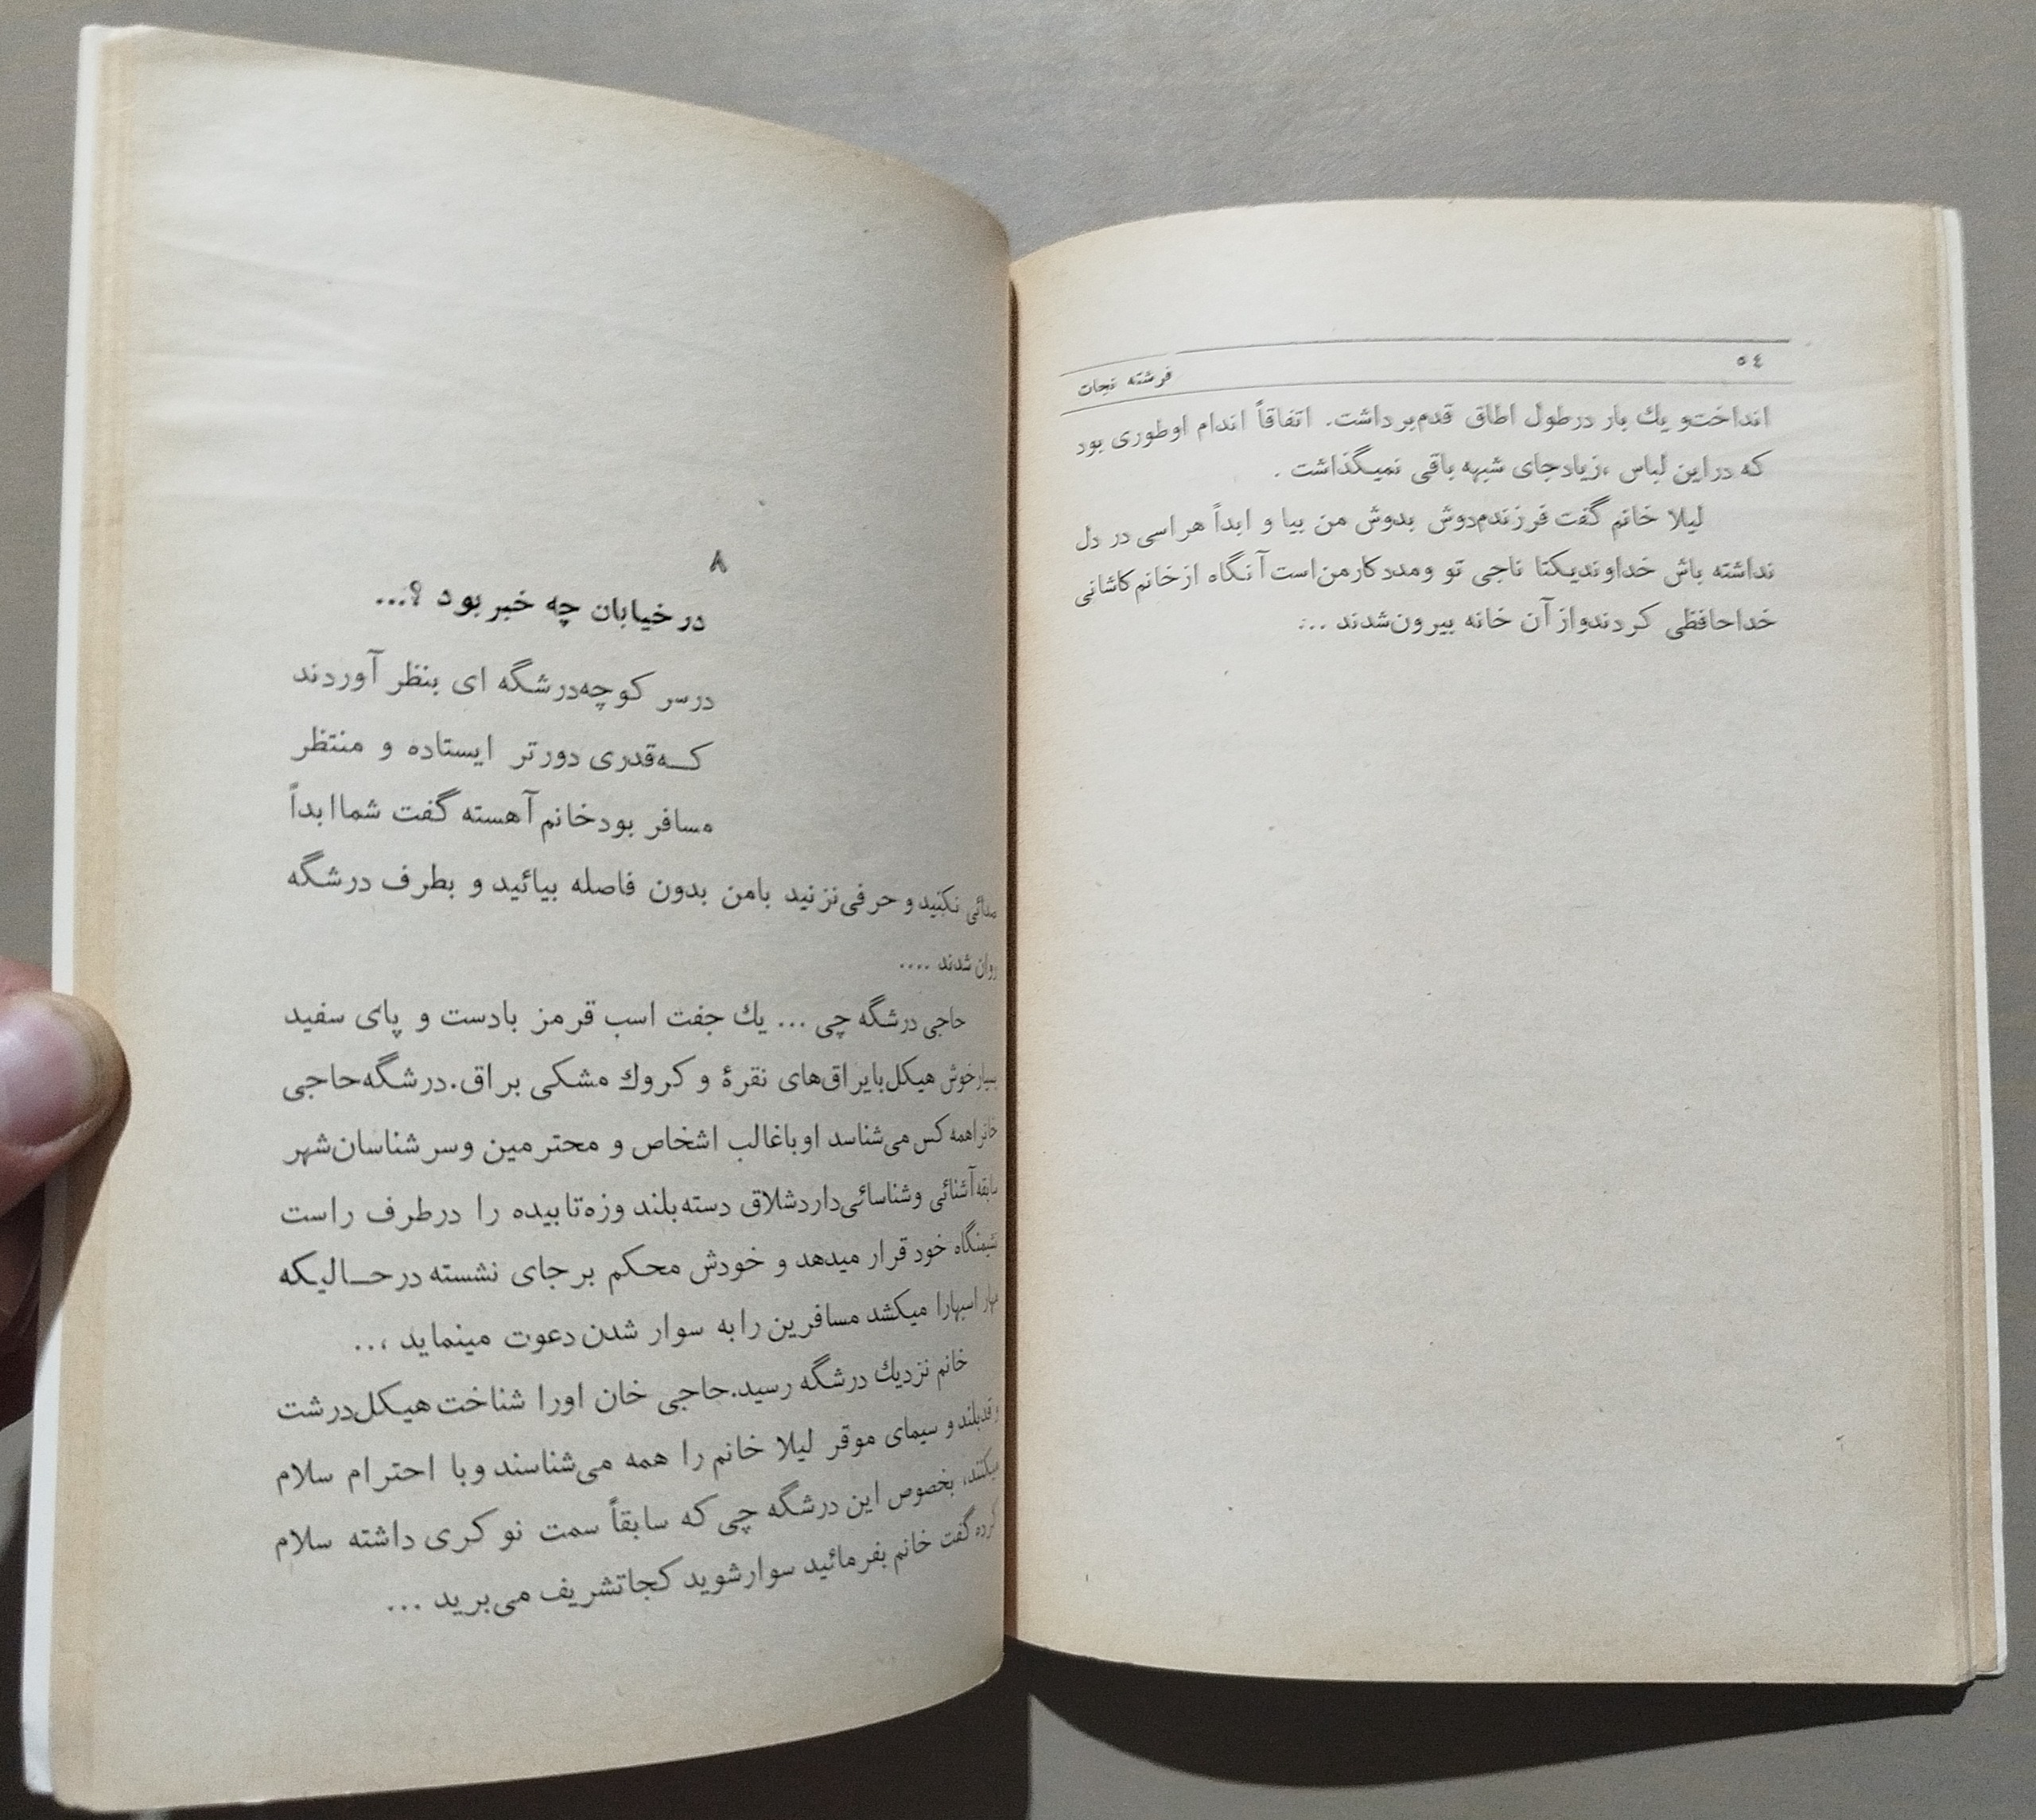 ٥٤
فرشته نجات
انداخت‌و یك بار درطول اطاق قدم‌برداشت. اتفاقاً اندام اوطوری بود
که دراین لباس ،زیادجای شبهه باقی نمیگذاشت .
لیلا خانم گفت فرزندم‌دوش بدوش من بیا و ابداً هراسی در دل
نداشته باش خداوندیکتا ناجی تو ومددکارمن‌است آنگاه ازخانم‌کاشانی
خداحافظی کردندواز آن خانه بیرون‌شدند ...
۸
در خیابان چه خبر بود ؟...
درسر کوچه‌درشگه ای بنظر آوردند
کـه‌قدری دورتر ایستاده و منتظر
مسافر بودخانم آهسته گفت شماابداً
نکنید و حرفی‌نزنید بامن بدون فاصله بیائید و بطرف درشگه
روان شدند ....
حاجی درشگه چی ... یك جفت اسب قرمز بادست و پای سفید
بسیارخوش هیکل‌بایراق‌های نقرهٔ و کروك مشکی براق.درشگه‌حاجی
خانراهمه کس می‌شناسد اوباغالب اشخاص و محترمین وسرشناسان‌شهر
سابقه‌آشنائی وشناسائی‌داردشلاق دسته‌بلند وزه‌تابیده را درطرف راست
نشیمنگاه خود قرار میدهد و خودش محکم برجای نشسته درحـالیکه
مهار اسبهارا میکشد مسافرین رابه سوار شدن دعوت مینماید ...
خانم نزدیك درشگه رسید.حاجی خان اورا شناخت هیکل‌درشت
و قدبلند و سیمای موقر لیلا خانم را همه می‌شناسند وبا احترام سلام
میکنند، بخصوص این درشگه چی که سابقاً سمت نوکری داشته سلام
کرده گفت خانم بفرمائید سوارشوید کجاتشریف می‌برید ...